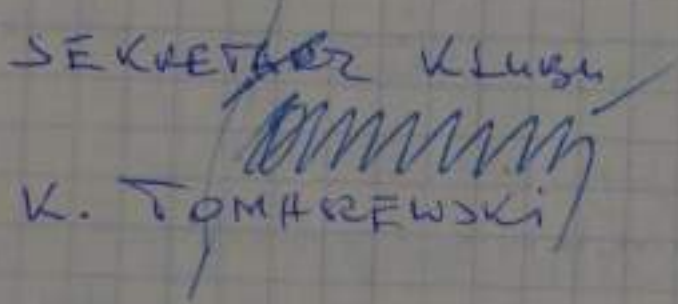 SEKRETARZ KLUBU
K. TOMASZEWSKI